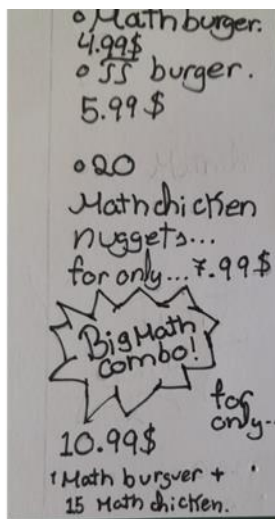 o Math burger.
4.99$
o ∬ burger.
5.99$
o 20
Math chicken
nuggets...
for only... 7.99$
Big Math
combo!
for
only..
10.99$
1 Math bursver +
15 Math chicken.